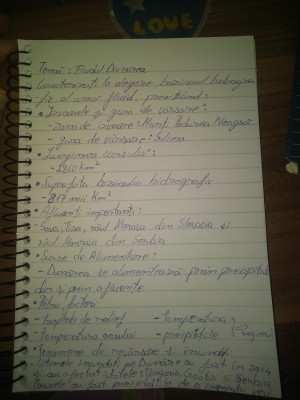 LOVE
Temă: Fluviul Dunărea
Caracterizați la alegere, bazinul hidrogra-
fic al unui fluviu, precizând:
• Izvoarele și gura de vărsare:
- Zona de izvoare: Munții Pădurea Neagră
- gura de vărsare: Sulina
• Lungimea cursului:
- 2860 km²
• Suprafața bazinului hidrografic
- 817 mii km²
• Afluenți importanți:
Sava, Tisa, râul Morava din Slovacia și
râul Morava din Serbia
• Surse de Alimentare:
- Dunărea se alimentează prin precipitații
și prin afluente
- Treptele de relief - Temperatura
- Temperatura aerului - precipitațiile
• Fenomene de revărsare și inundații
- Ultimele inundații pe Dunăre au fost în 2014
și au afectat statele: Ungaria, Croația și Serbia